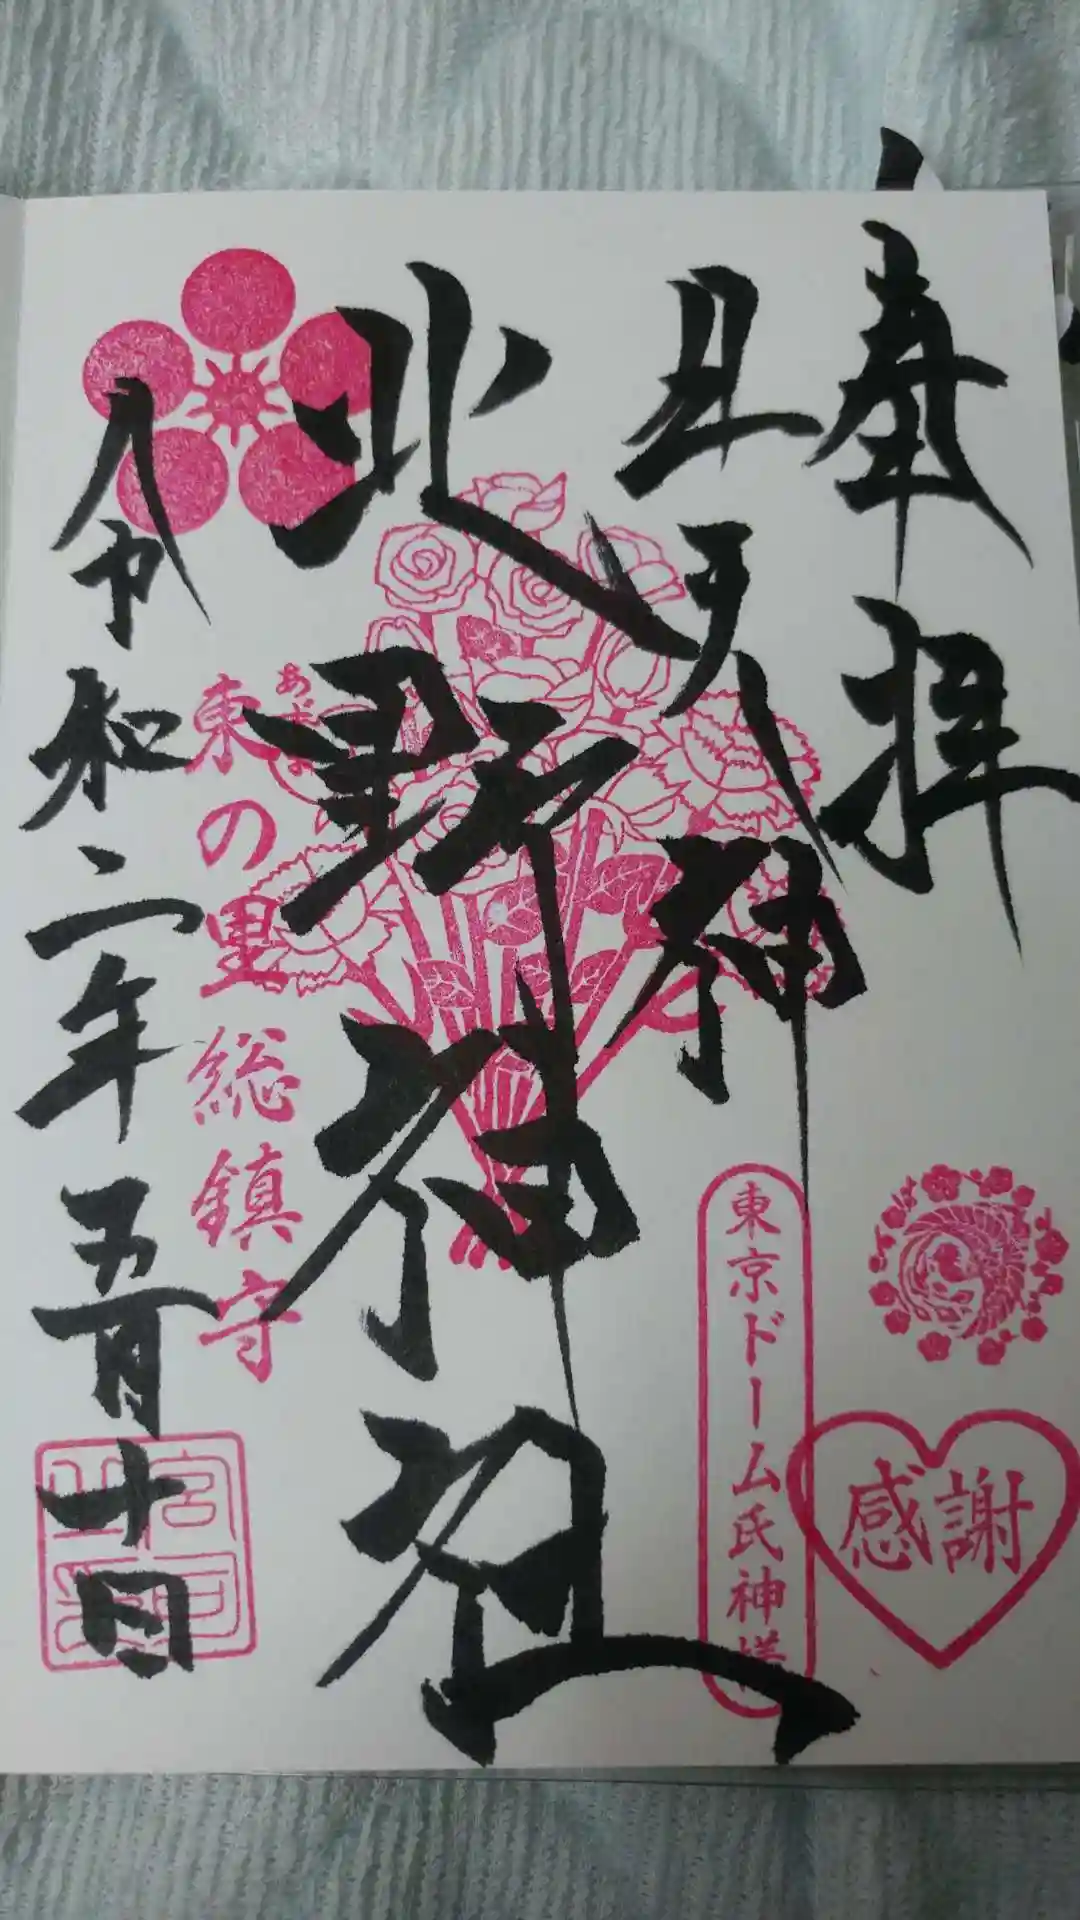 奉拝
丑天神
北野神社
令和二年五月十日
東の里総鎮守
東京ドーム氏神様
感謝